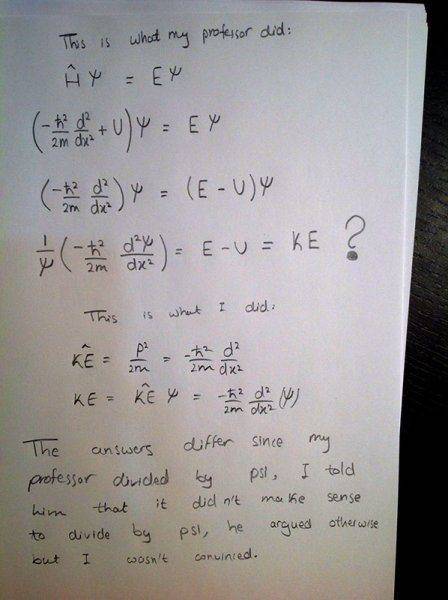 This is what my professor did:
Ĥ Ψ = E Ψ
(-ħ²/2m d²/dx² + U) Ψ = E Ψ
(-ħ²/2m d²/dx²) Ψ = (E - U) Ψ
1/Ψ (-ħ²/2m d²Ψ/dx²) = E - U = KE ?
This is what I did:
K̂E = P²/2m = -ħ²/2m d²/dx²
KE = K̂E Ψ = -ħ²/2m d²/dx² (Ψ)
The answers differ since my
professor divided by psi, I told
him that it didn't make sense
to divide by psi, he argued otherwise
but I wasn't convinced.